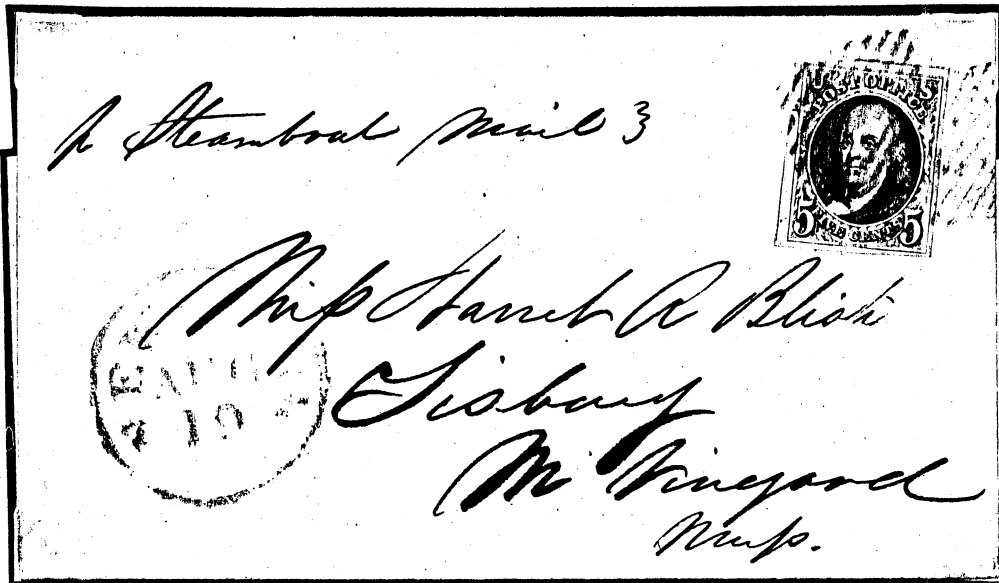 p Steamboat Mail 3
U S
POST OFFICE
5 FIVE CENTS 5
Miss Harriet A Blish
Tisbury
M Vineyard
Mass.
19